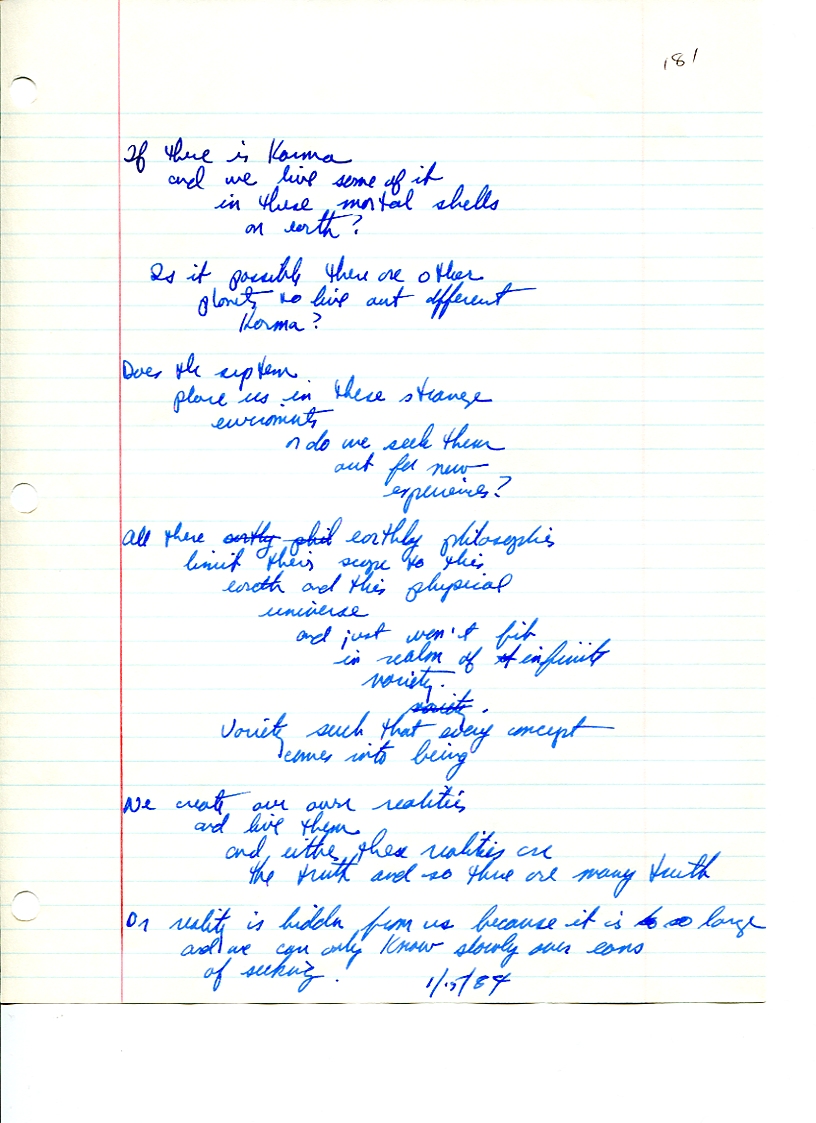 181
If there is Karma
and we live some of it
in these mortal shells
on earth?
Is it possible there are other
planets to live out different
Karma?
Does the system
place us in these strange
enviroments
or do we seek them
out for new
experiences?
All these earthly phil earthly philosophies
limit their scope to this
earth and this physical
universe
and just won't fit
in realm of infinite
variety.
society.
Variety such that every concept
comes into being
We create our own realities
and live them
and either these realities are
the truth and so there are many truth
Or reality is hidden from us because it is so so large
and we can only know slowly over eons
of seeking.
1/15/84